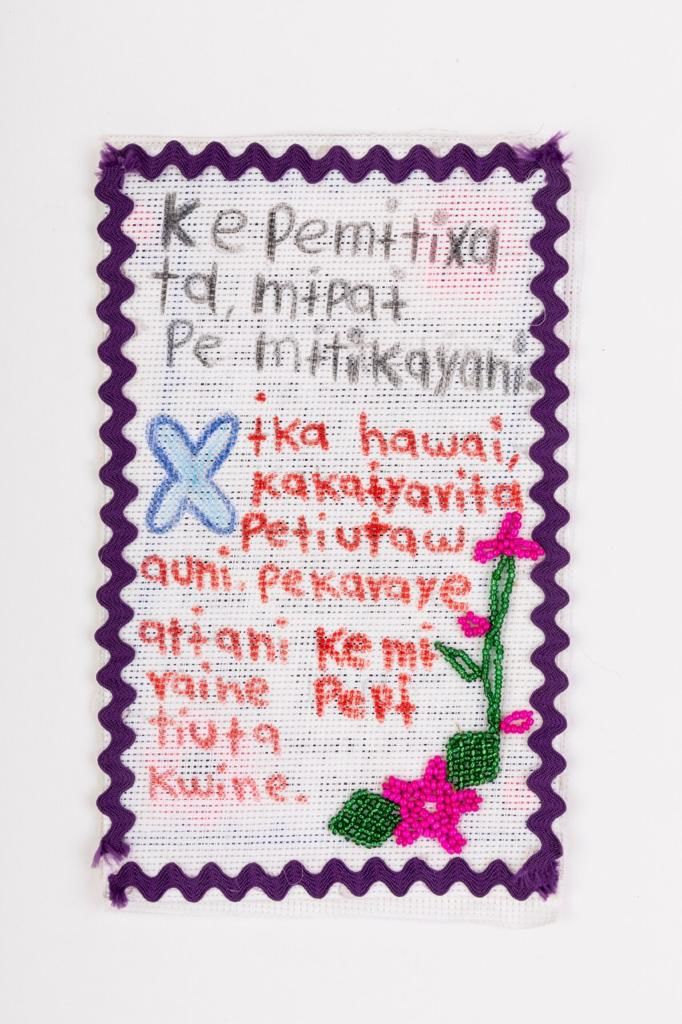 Ke Pemɨtixa
ta, mɨpaɨ
Pe mɨtikayani.
Xɨka hawai,
kakaɨyarita
Petiutaw
auni, pekaraye
atɨani Kemɨ
raine Perɨ
tiuta
kwine.